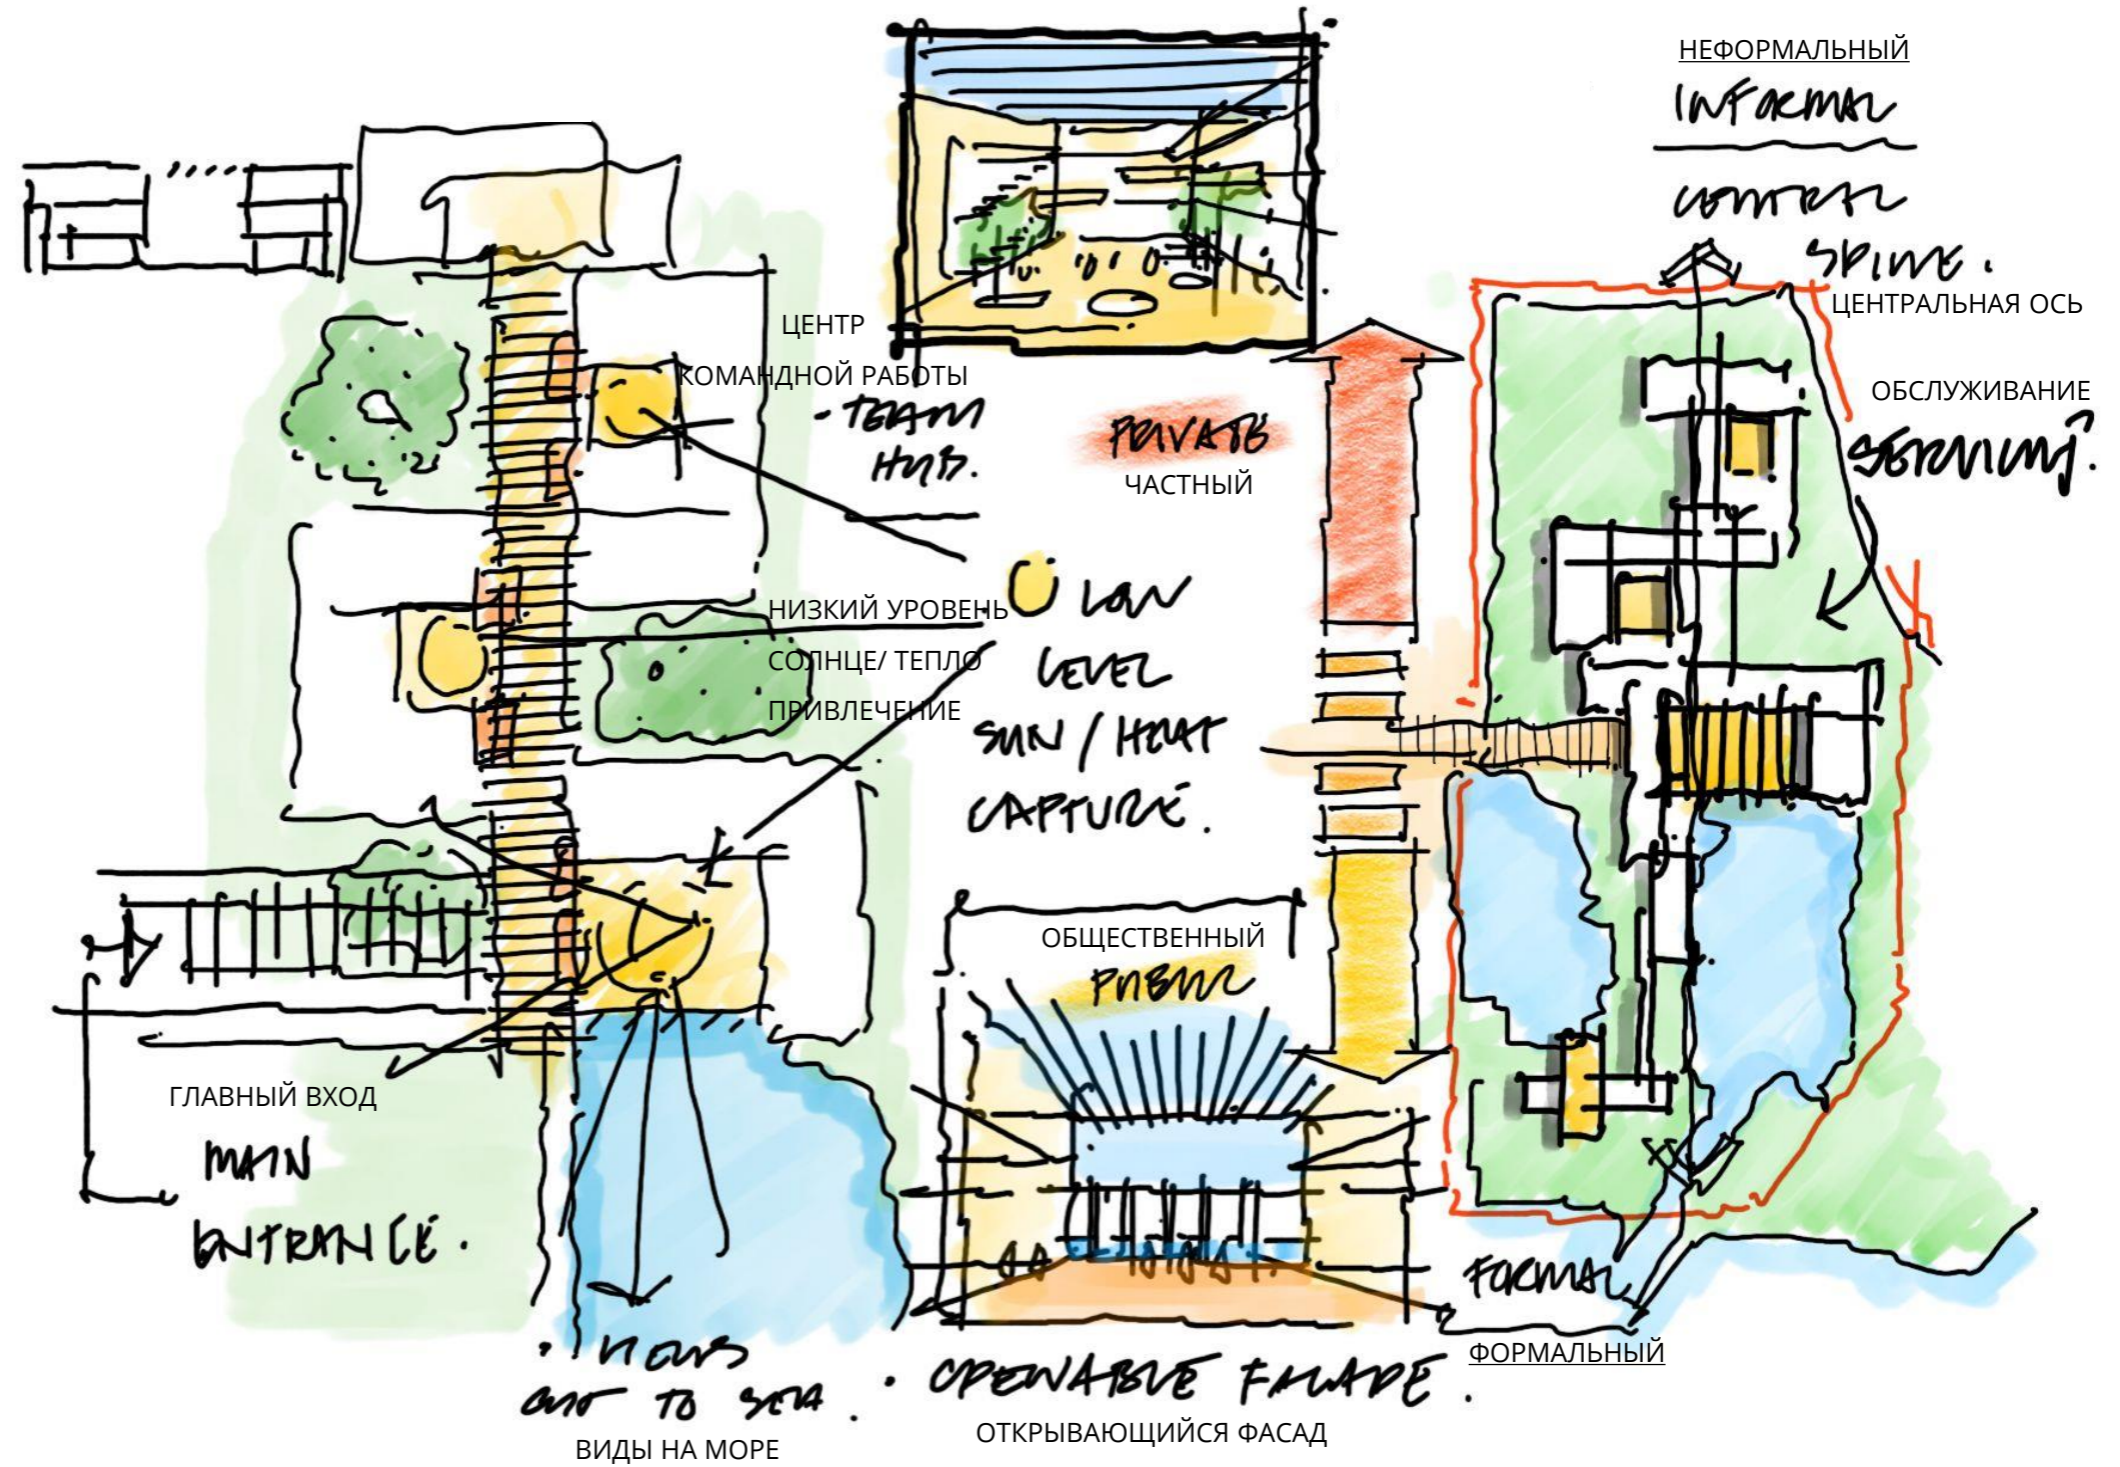 НЕФОРМАЛЬНЫЙ
INFORMAL
CENTRAL
SPINE.
ЦЕНТРАЛЬНАЯ ОСЬ
ОБСЛУЖИВАНИЕ
SERVICING.
ЦЕНТР
КОМАНДНОЙ РАБОТЫ
- TEAM
HUB.
PRIVATE
ЧАСТНЫЙ
НИЗКИЙ УРОВЕНЬ
СОЛНЦЕ/ ТЕПЛО
ПРИВЛЕЧЕНИЕ
LOW
LEVEL
SUN / HEAT
CAPTURE.
ОБЩЕСТВЕННЫЙ
PUBLIC
ГЛАВНЫЙ ВХОД
MAIN
ENTRANCE.
FORMAL
ФОРМАЛЬНЫЙ
• VIEWS
OUT TO SEA.
ВИДЫ НА МОРЕ
• OPENABLE FACADE.
ОТКРЫВАЮЩИЙСЯ ФАСАД